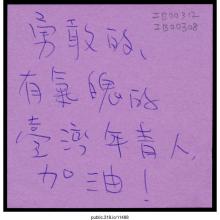 IB00312
IB00308
勇敢的、
有氣魄的
臺灣年青人，
加油！
public.318.io/11488